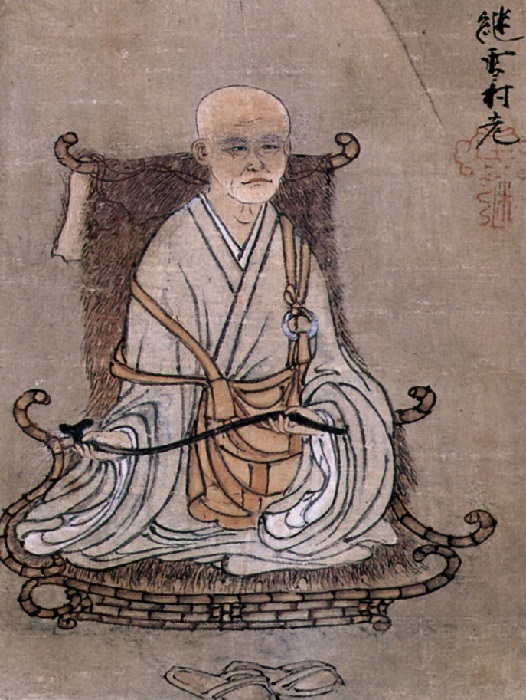 継雪村老